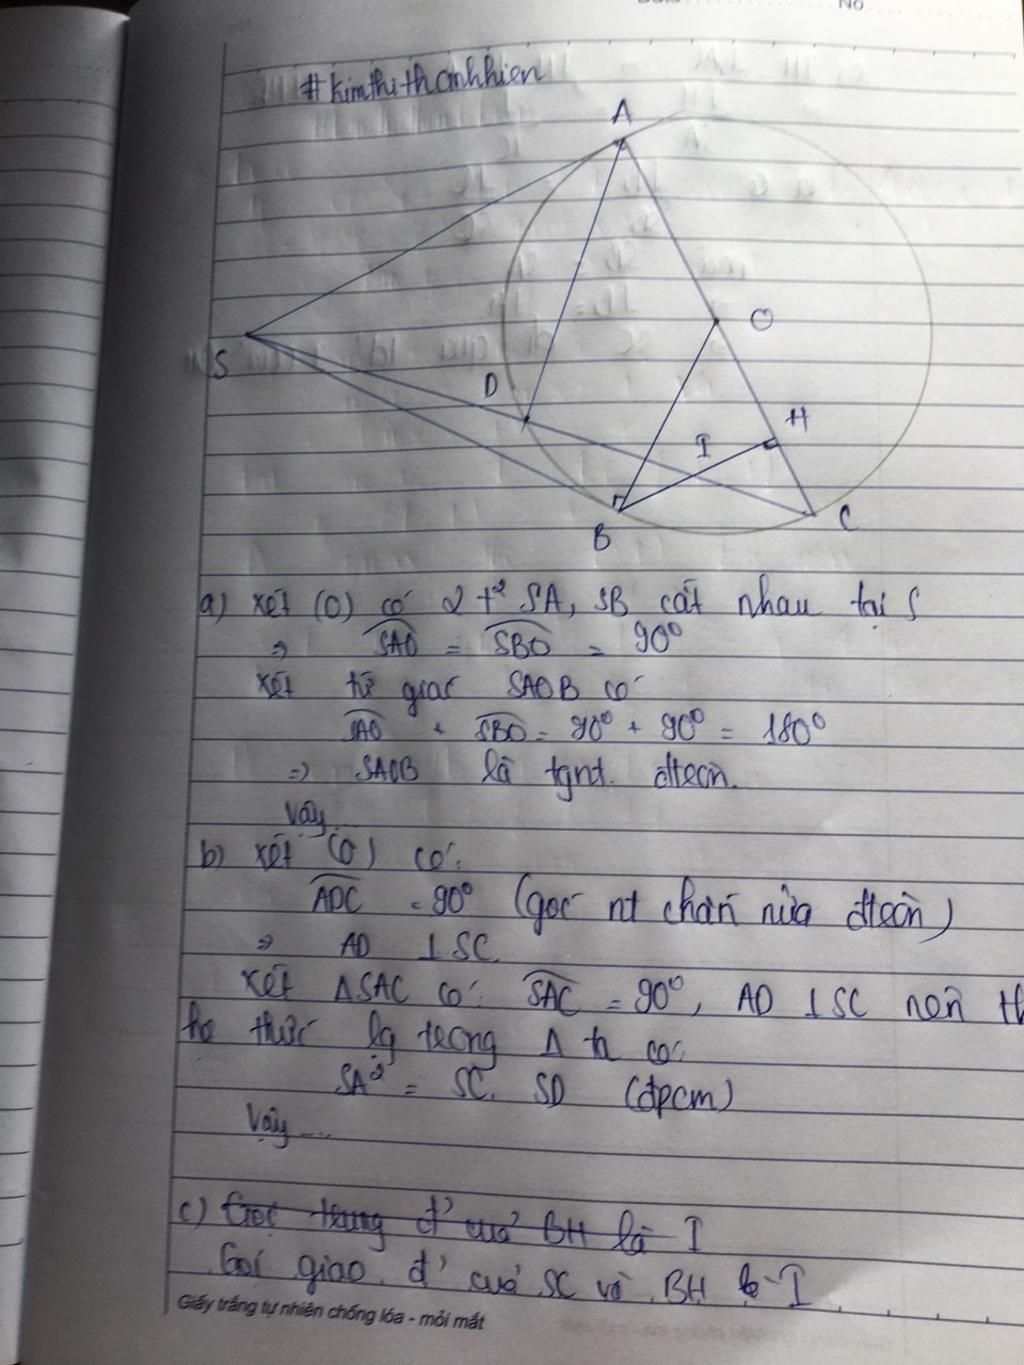 No
#kimthithanhhien
A
S
O
D
H
I
B
C
a) Xét (O) có 2 t² SA, SB cắt nhau tại S
=> SAO = SBO = 90°
Xét tứ giác SAOB có
SAO + SBO = 90° + 90° = 180°
=> SAOB là tgnt. đtròn.
Vậy
b) Xét (O) có:
ADC = 90° (góc nt chắn nửa đtròn)
=> AD ⊥ SC
Xét ΔSAC có: SAC = 90°, AD ⊥ SC nên th
hệ thức lg trong Δ ta có:
SA² = SC. SD (đpcm)
Vậy...
c) Gọi trung đ' của BH là I
Gọi giao đ' của SC và BH là I
Giấy trắng tự nhiên chống lóa - mỏi mắt